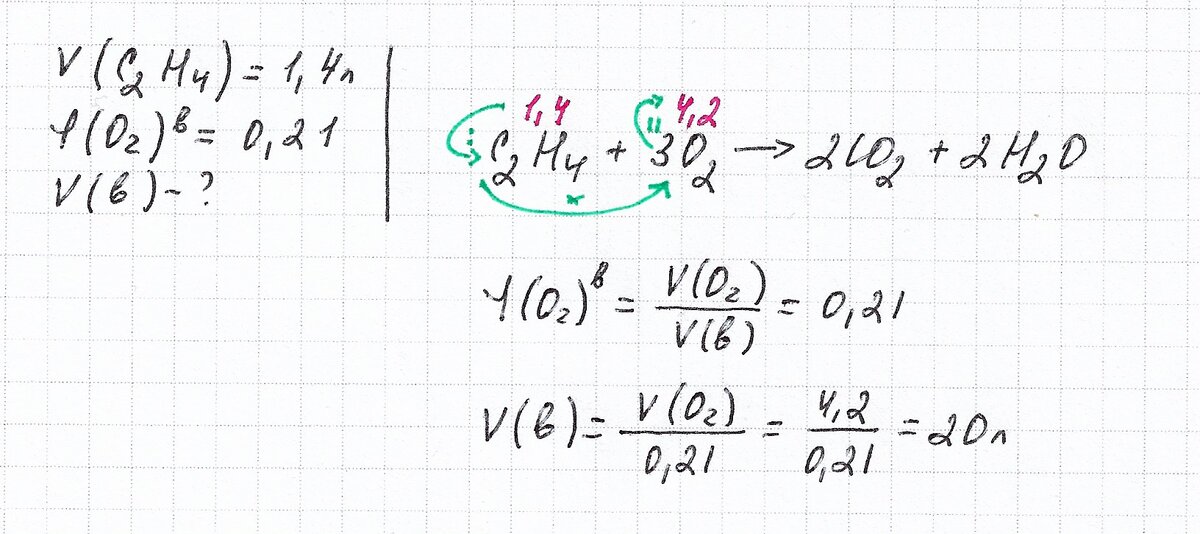 V(C₂H₄) = 1,4л
φ(O₂)ᵇ = 0,21
V(в) - ?
1,4 4,2
: × =
C₂H₄ + 3O₂ → 2CO₂ + 2H₂O
φ(O₂)ᵇ = V(O₂)/V(в) = 0,21
V(в) = V(O₂)/0,21 = 4,2/0,21 = 20л